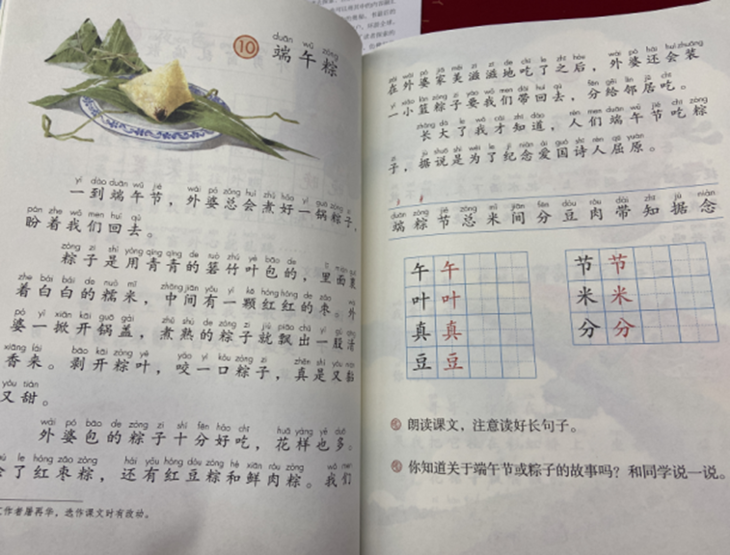 duān wǔ zòng
10 端午粽
yí dào duān wǔ jié wài pó zǒng huì zhǔ hǎo yì guō zòng zi
一到端午节，外婆总会煮好一锅粽子，
pàn zhe wǒ men huí qù
盼着我们回去。
zòng zi shì yòng qīng qīng de ruò zhú yè bāo de
粽子是用青青的箬竹叶包的，里面裹
zhe bái bái de nuò mǐ zhōng jiān yǒu yì kē hóng hóng de zǎo wài
着白白的糯米，中间有一颗红红的枣。外
pó yì xiān kāi guō gài zhǔ shú de zòng zi jiù piāo chū yì gǔ qīng
婆一掀开锅盖，煮熟的粽子就飘出一股清
xiāng lái bāo kāi zòng yè yǎo yì kǒu zòng zi zhēn shì yòu nián
香来。剥开粽叶，咬一口粽子，真是又黏
yòu tián
又甜。
wài pó bāo de zòng zi shí fēn hǎo chī huā yàng yě duō
外婆包的粽子十分好吃，花样也多。
le hóng zǎo zòng hái yǒu hóng dòu zòng hé xiān ròu zòng wǒ men
了红枣粽，还有红豆粽和鲜肉粽。我们
作者屠再华，选作课文时有改动。
zài wài pó jiā měi zī zī de chī le zhī hòu wài pó hái huì zhuāng
在外婆家美滋滋地吃了之后，外婆还会装
yì xiǎo lán zòng zi yào wǒ men dài huí qù fēn gěi lín jū chī
一小篮粽子要我们带回去，分给邻居吃。
zhǎng dà le wǒ cái zhī dào rén men duān wǔ jié chī zòng
长大了我才知道，人们端午节吃粽
zi jù shuō shì wèi le jì niàn ài guó shī rén qū yuán
子，据说是为了纪念爱国诗人屈原。
duān zòng jié zǒng mǐ jiān fēn dòu ròu dài zhī jù niàn
端粽节总米间分豆肉带知据念
午 午 节 节
叶 叶 米 米
真 真 分 分
豆 豆
朗读课文，注意读好长句子。
你知道关于端午节或粽子的故事吗？和同学说一说。